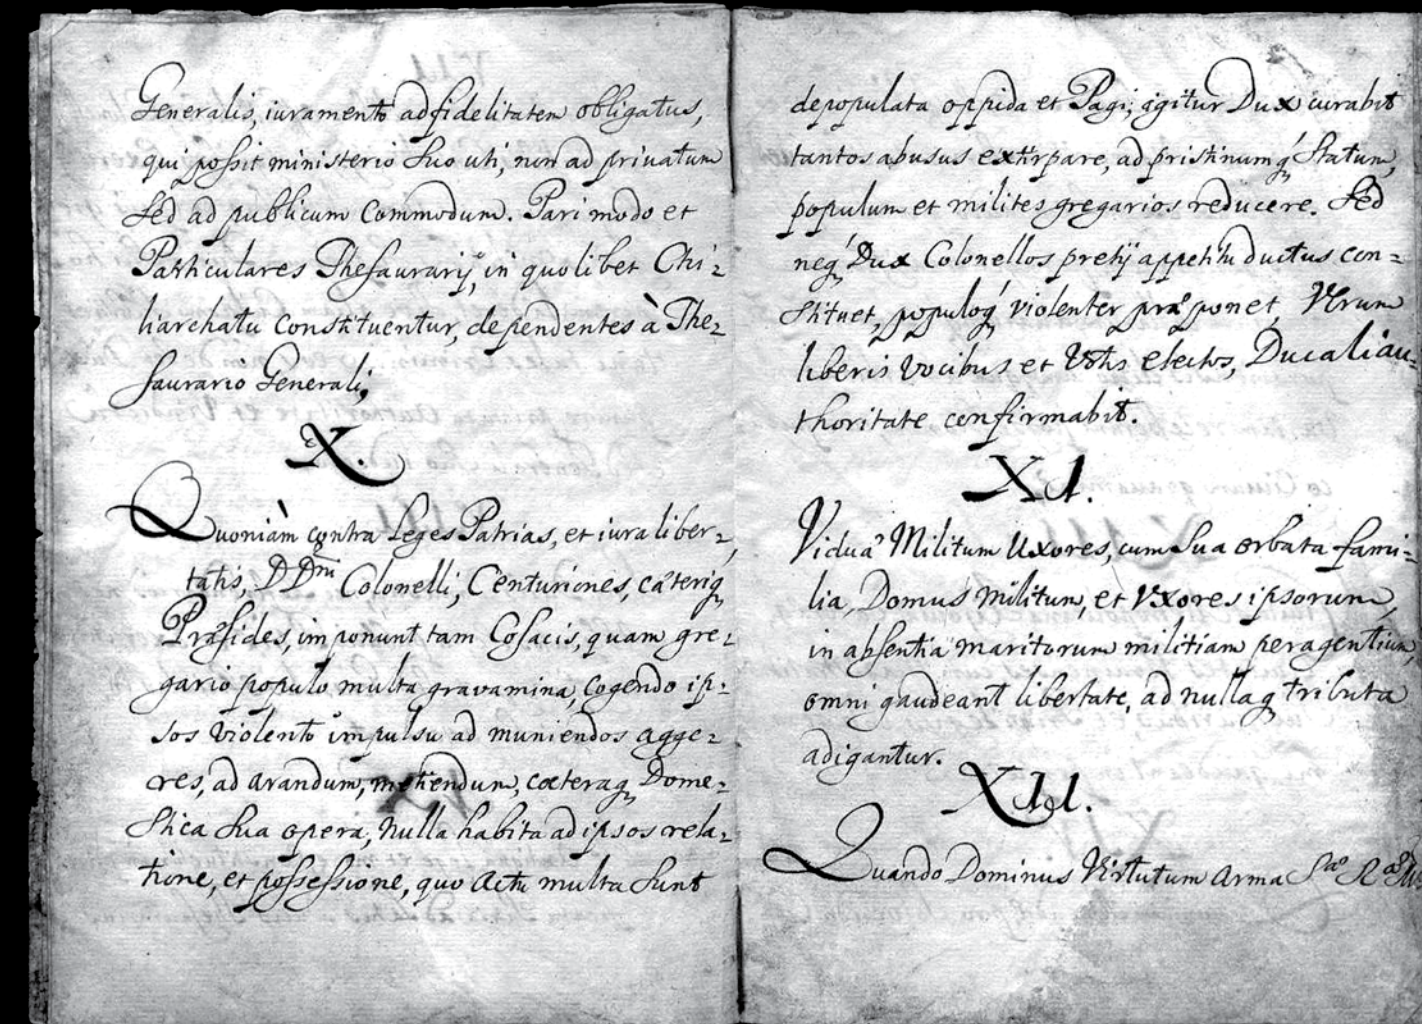 Generalis, iuramento ad fidelitatem obligatus,
qui possit ministerio suo uti, non ad priuatum
sed ad publicum commodum. Pari modo et
Particulares Thesaurarij, in quolibet Chi=
liarchatu constituentur, dependentes à The=
saurario Generali,
X.
Quoniàm contra Leges Patrias, et iura liber=
tatis, DDni Colonelli, Centuriones, cæteriq,
Præsides, imponunt tam Cosacis, quam gre=
gario populo multa gravamina, cogendo ip=
sos violento impulsu ad muniendos agge=
res, ad arandum, metiendum, cæteraq, Dome=
stica sua opera, nulla habita ad ipsos rela=
tione, et possessione, quo actu multa sunt
depopulata oppida et Pagi; igitur Dux curabit
tantos abusus extirpare, ad pristinumq́, statum,
populum et milites gregarios reducere. Sed
neq́, Dux Colonellos pretij appetitu ductus con=
stituet, populoq́, violenter præponet, Verum
liberis vocibus et Votis electos, Ducali au=
thoritate confirmabit.
XI.
Viduæ Militum Uxores, cum sua orbata fami=
lia, Domus Militum, et Vxores ipsorum,
in absentia maritorum militiam peragentium,
omni gaudeant libertate, ad nullaq, tributa
adigantur.
XII.
Quando Dominus Virtutum arma Sæ Ræ